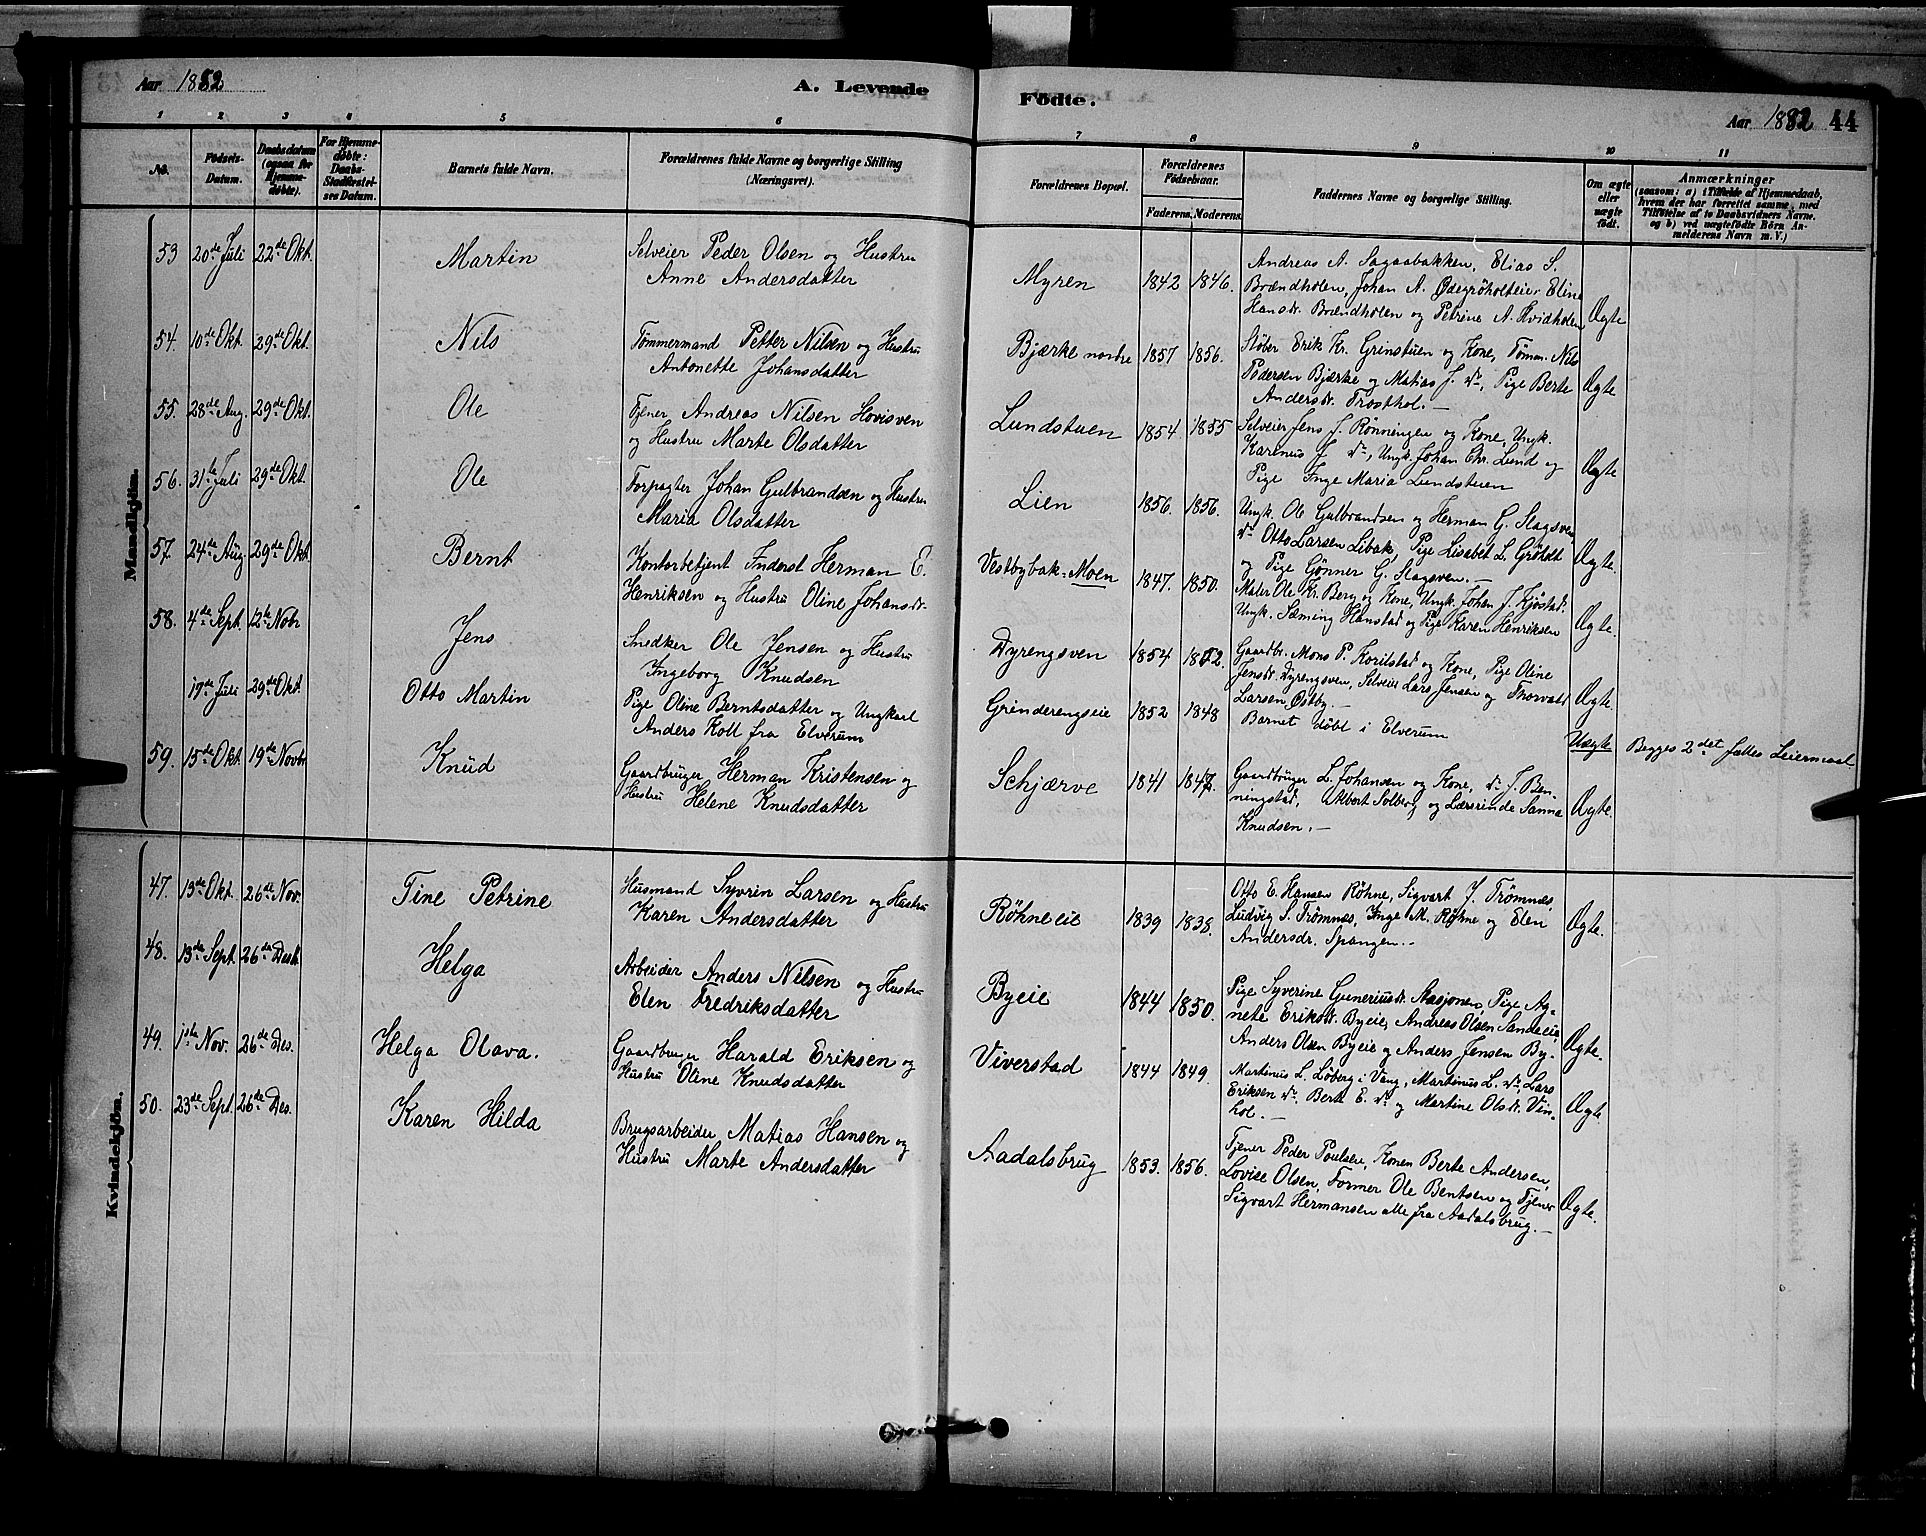 Aar 1882.
A. Levende
Födte.
Aar 1882
44
1 2 3 4 5 6 7 8 9 10 11
No.
Födsels-Datum.
Daabsdatum (ogsaa for Hjemmedöbte).
For Hjemmedöbte: Daabs-Stadfæstelses Datum.
Barnets fulde Navn.
Forældrenes fulde Navne og borgerlige Stilling (Næringsvei).
Forældrenes Bopæl.
Forældrenes Födselsaar.
Faderens. Moderens.
Faddernes Navne og borgerlige Stilling.
Om ægte eller uægte födt.
Anmærkninger
(saasom: a) i Tilfælde af Hjemmedaab, hvem der har forrettet samme, med Tilföielse af to Daabsvidners Navne. og b) ved uægtefödte Börn Anmelderens Navn m. V.)
Mandkjön.
53 20de Juli 22de Okt. Martin
Selveier Peder Olsen og Hustru
Anne Andersdatter
Myren 1842 1846.
Andreas A. Sagaabakken, Elias S.
Brændholen, Johan A. Ödegröholteie, Eline
Hansdr. Brændholen og Petrine A. Hvidholen
Ægte
54. 10de Okt. 29de Okt. Nils
Tömmermand Petter Nilsen og Hustru
Antonette Johansdatter
Bjærke nordre 1857 1856.
Stöber Erik Kr. Grinstuen og Kone, Tömm. Nils
Pedersen Bjærke og Matias J. do, Pige Berte
Andersdr. Trosthol.
Ægte
55. 28de Aug. 29de Okt. Ole
Tjener Andreas Nilsen Hovisven
og Hustru Marte Olsdatter
Lundstuen 1854 1855
Selveier Jens J. Rönningen og Kone, Ungk.
Karenus J. do, Ungk. Johan Chr. Lund og
Pige Inge Maria Lundstuen
Ægte
56. 31te Juli 29de Okt. Ole
Forpagter Johan Gulbrandsen og Hustru
Maria Olsdatter
Lien 1856. 1856.
Ungk. Ole Gulbrandsen og Herman G. Slagsven
do Otto Larsen Libak, Pige Lisabet L. Gröholt
og Pige Gönner G. Slagsven.
Ægte.
57. 24de Aug 29de Okt. Bernt
Kontorbetjent Inderst Herman E.
Henriksen og Hustru Oline Johansdr.
Vestbybak. Moen 1847. 1850.
Maler Ole Kr. Berg og Kone, Ungk. Johan J. Kjöstad.
Ungk. Sæming Hanstad og Pige Karen Henriksen
Ægte.
58. 4de Sept. 12te Nobr Jens
Snedker Ole Jensen og Hustru
Ingeborg Knudsen
Dyrengsven 1854 1852.
Gaardbr. Mons P. Korilstad og Kone, Pige Oline
Jensdr. Dyrengsven, Selveier Lars Jensen og Thorvald
Larsen Östby.
Ægte.
17de Juli 29de Okt. Otto Martin
Pige Oline Berntsdatter og Ungkarl
Anders Koll fra Elverum
Grinderengseie 1852 1848
Barnet döbt i Elverum
Uægte
Begges 2det fælles Leiermaal
59. 15de Okt. 19de Novbr Knud
Gaardbruger Herman Kristensen og
Hustru Helene Knudsdatter
Schjærve 1841 1847.
Gaardbruger L. Johansen og Kone, do J. Benningstad,
Albert Solberg og Lærerinde Sanna
Knudsen.
Ægte.
Kvindekjön.
47. 13de Okt. 26de Nov. Tine Petrine
Husmand Syvrin Larsen og Hustru
Karen Andersdatter
Röhneeie 1839 1838.
Otto E. Hansen Röhne, Sigvart J. Trömnæs,
Ludvig S. Trömnæs, Inge M. Röhne og Elen
Andersdr. Spangen.
Ægte.
48. 13de Sept. 26de Des. Helga
Arbeider Anders Nilsen og Hustru
Elen Fredriksdatter
Byeie 1844 1850.
Pige Syverine Guneriusdr. Stasjonen, Pige Agnete
Eriksdr. Byeie, Andreas Olsen Sandeeie,
Anders Olsen Byeie og Anders Jensen By.
Ægte.
49. 1ste Nov. 26de Des. Helga Olava.
Gaardbruger Harald Eriksen og
Hustru Oline Knudsdatter
Viverstad 1844 1849.
Martinus L. Löberg i Vang, Martinus L. do, Lars
Eriksen do. Berte E. do og Martine Olsdr. Vinhol.
Ægte.
50. 23de Sept. 26de Des. Karen Hilda
Brugsarbeider Matias Hansen og
Hustru Marte Andersdatter
Aadalsbrug 1853. 1856.
Tjener Peder Poulsen, Konen Berte Andersen,
Lovise Olsen, Former Ole Bentsen og Tjener
Sigvart Hermansen alle fra Aadalsbrug.
Ægte.